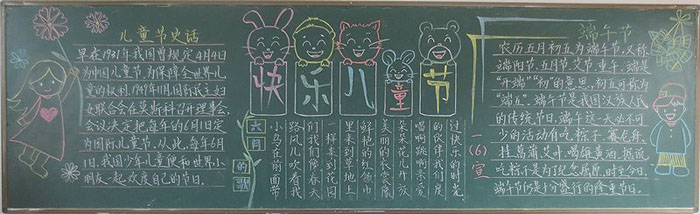 儿童节史话
早在1931年我国曾规定4月4日
为中国儿童节,为保障全世界儿
童的权利,1949年11月,国际民主妇
女联合会在莫斯科召开理事会,
会议决定把每年的6月1日定
为国际儿童节。从此,每年6月
1日,我国少年儿童便和世界小
朋友一起欢度自己的节日。
快乐儿童节
六月的歌
过快乐的时光
的伙伴我们度
唱啊跳啊亲爱
朵朵花儿开放
美丽的天空像
鲜艳的红领巾
里来到草地上
一样来到花园
们我们像春天
路风儿吹着我
小鸟在前面带
端午节
农历五月初五为端午节,又称
端阳节、五月节、艾节、重午、端是
“开端”“初”的意思,初五可称为
“端五”。端午节是我国汉族人民
的传统节日。端午这一天必不可
少的活动有吃粽子、赛龙舟、
挂菖蒲艾叶、喝雄黄酒。据说
吃粽子是为了纪念屈原。时至今日,
端午节仍是十分盛行的隆重节日。
一(6)宣